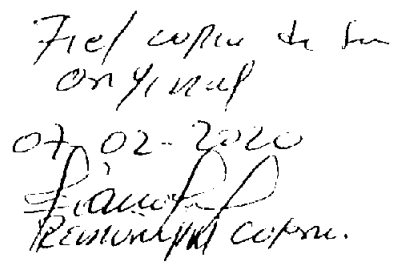 Fiel copia de su
original
07-02-2020
copia.